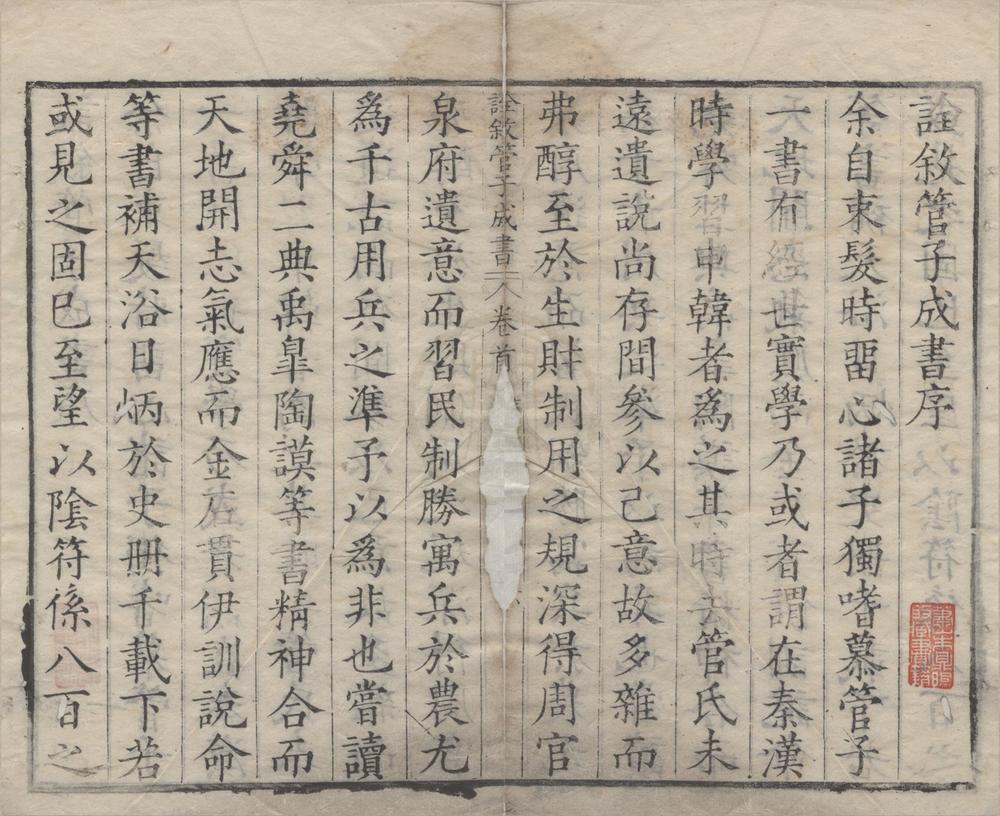 詮敘管子成書序
余自束髮時畱心諸子獨嗜慕管子
一書有經世實學乃或者謂在秦漢
時學習申韓者爲之其時去管氏未
遠遺說尚存間參以己意故多雜而
弗醇至於生財制用之規深得周官
詮敘管子成書 卷首
泉府遺意而習民制勝寓兵於農尤
爲千古用兵之準予以爲非也嘗讀
堯舜二典禹臯陶謨等書精神合而
天地開志氣應而金石貫伊訓說命
等書補天浴日炳於史册千載下若
或見之固巳至望以陰符係八百之